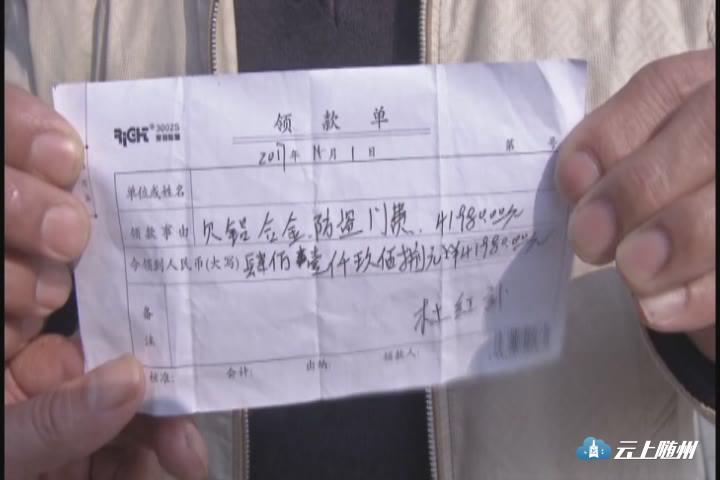 RIGHT® 3002S
领款单
2017年11月1日
第 号
单位或姓名
领款事由 欠铝合金防盗门费, 41980.00元
今领到人民币(大写) 肆佰壹仟玖佰捌元 ¥41980.00元
备注
杜红
核准: 会计: 出纳: 领款人:
云上随州